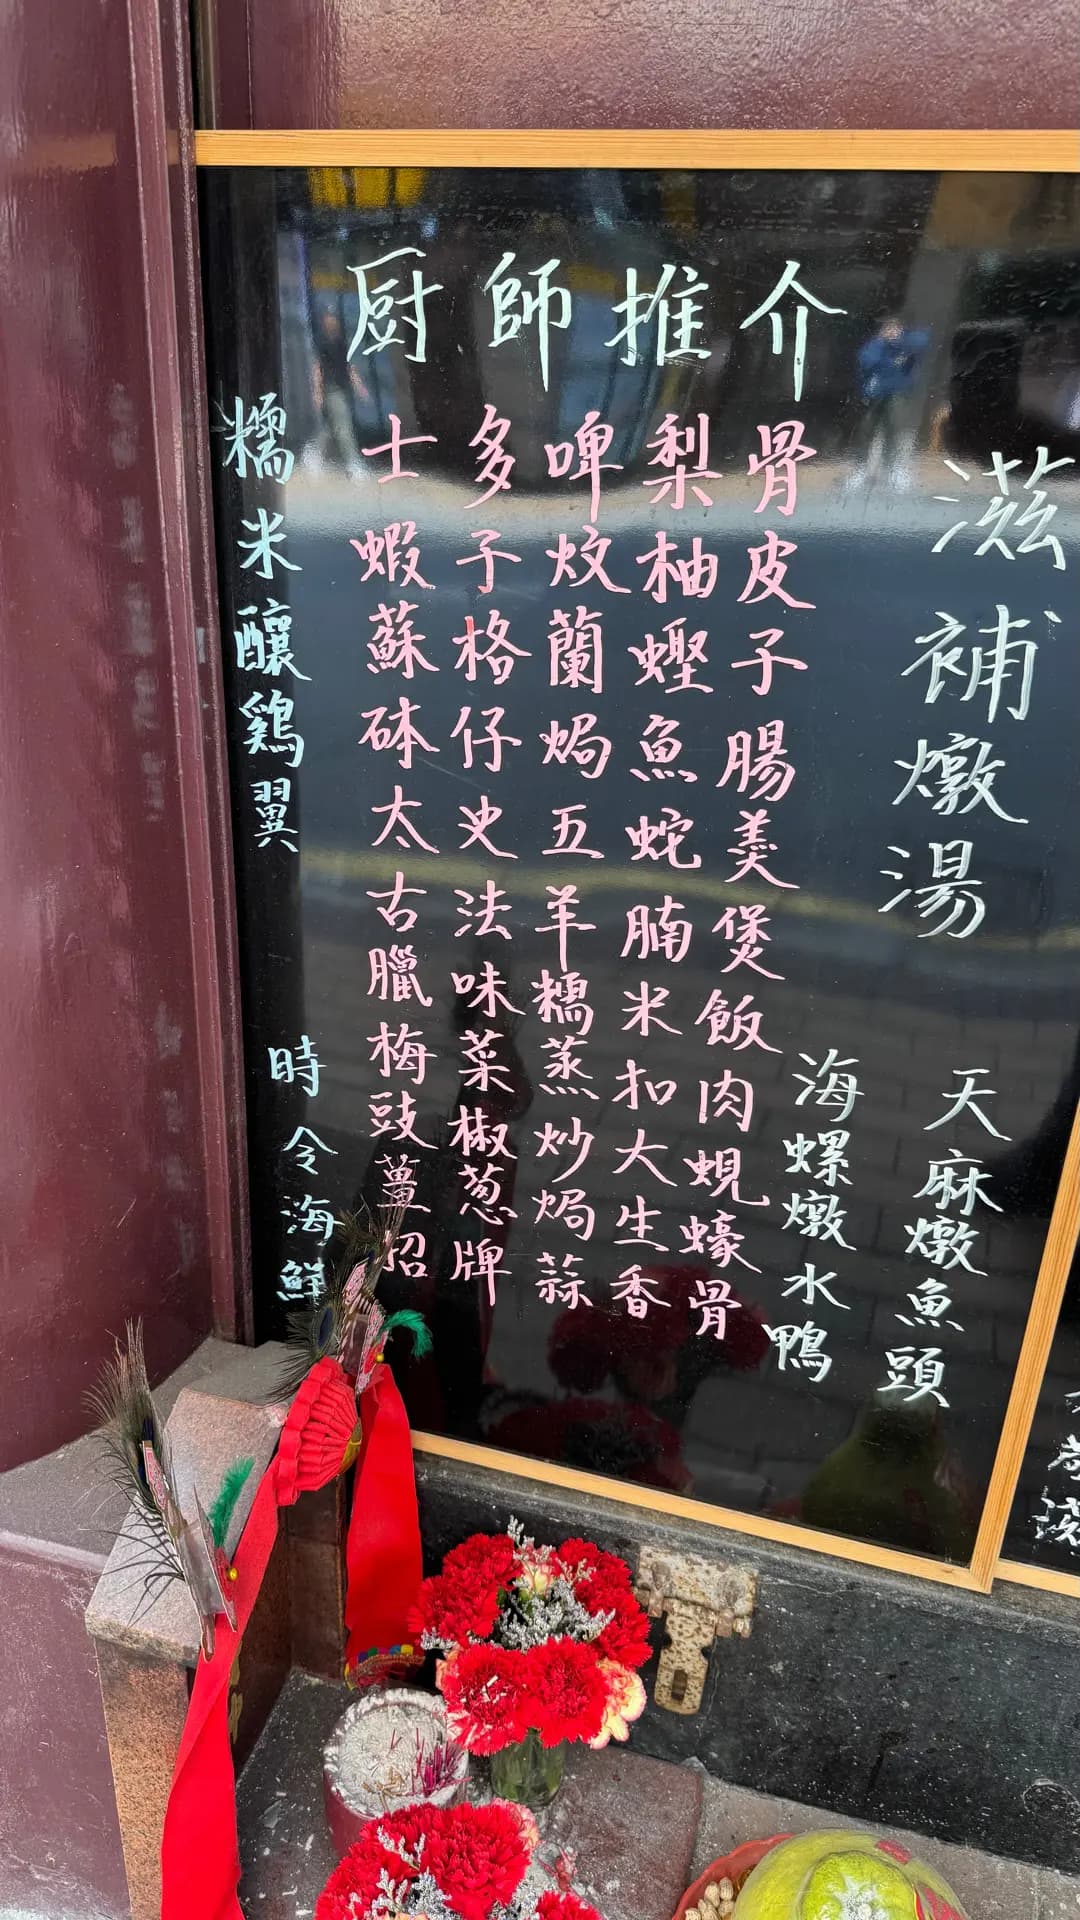 厨師推介
士多啤梨骨
蝦子炆柚皮
蘇格蘭蟶子
砵仔焗魚腸
太史五蛇羹
古法羊腩煲
臘味糯米飯
梅菜蒸扣肉
豉椒炒大蜆
薑葱焗生蠔
招牌蒜香骨
糯米釀鶏翼
時令海鮮
滋補燉湯
天麻燉魚頭
海螺燉水鴨